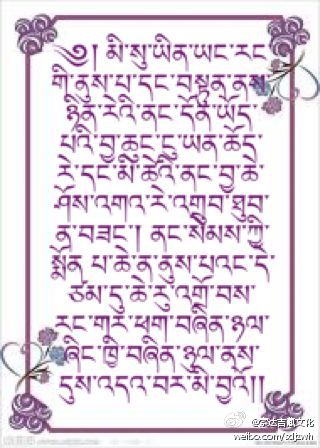 ༄། མི་སུ་ཡིན་ཡང་རང་
གི་ནུས་པ་དང་བསྟུན་ནས་
ཉིན་རེའི་ནང་དོན་ཡོད་
པའི་བྱ་ཆུང་ངུ་ཡན་ཆོད་
རེ་དང་མི་ཚེའི་ནང་བྱ་ཆེ་
ཤོས་འགའ་རེ་འགྲུབ་ཐུབ་
ན་བཟང་། ནང་སེམས་ཀྱི་
སྨོན་པ་ཆེ་ན་ནུས་པའང་དེ་
ཙམ་དུ་ཆེ་རུ་འགྲོ་བས་
རང་གར་ཕག་བཞིན་ཉལ་
ཞིང་ཁྱི་བཞིན་ཉུལ་ནས་
དུས་འདའ་བར་མི་བྱའོ།།
weibo.com/xdjzwh